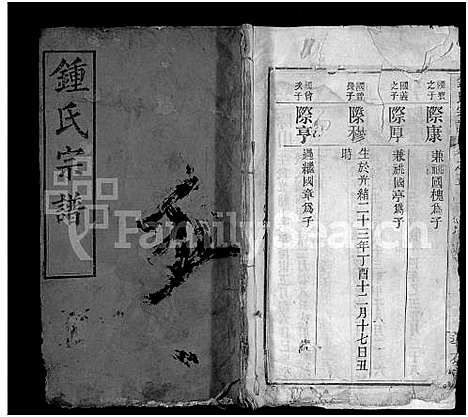 鍾氏宗譜
之子
際康
兼祧國槐為子
國義
之子
際厚
兼祧國亭為子
國曾
長子
際穆
生於光緒二十三年丁酉十二月十七日丑
時
國曾
次子
際亨
過繼國章為子
FamilySearch